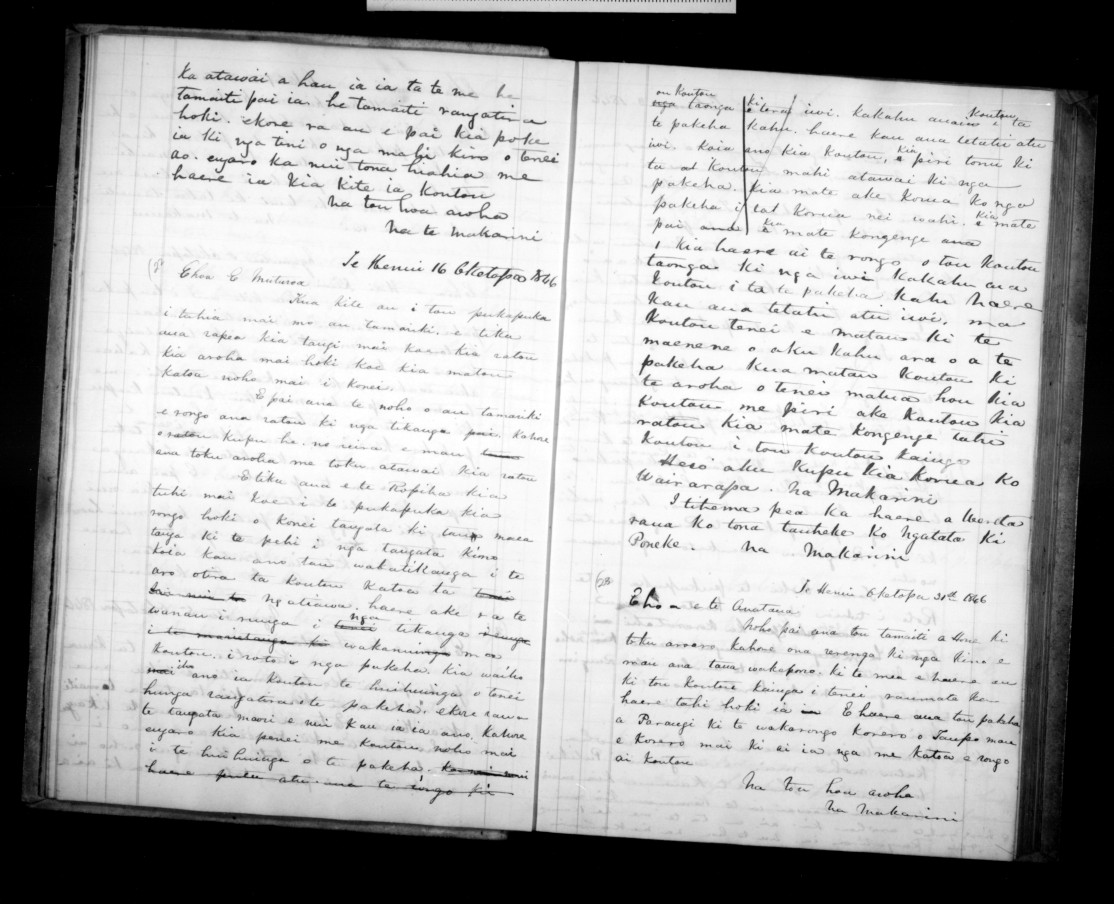 Ka atawai a hau ia ia ta te me he
tamaiti pai ia. he tamaiti rangatira
hoki. ekore ra au e pai kia poke
ia ki nga tini o nga mahi kino o tenei
ao. engaro ka nui tona hiahia me
haere ia kia kite ia koutou
na tou hoa aroha
Na te Makarini
Te Henui 16 Oketopa 1846
Ehoa E Maturoa
Kua kite au i tou pukapuka
i tuhia mai mo au tamariki. e tika
ana rapea kia tangi mai koe kia ratou
kia aroha mai hoki koe kia matou
katoa noho mai i konei.
E pai ana te noho o au tamariki
e rongo ana ratou ki nga tikanga pai. kahore
o ratou kupu he. no reira e mau
ana toku aroha me toku atawai kia ratou
E tika ana e te Ropiha kia
tuhi mai koe i te pukapuka kia
rongo hoki o konei tangata ki tau maea
tanga ki te pehi i nga tangata kino
koia kau ano tau wakatikanga i te
aro otira ta koutou katoa ta
Ngatiawa. haere ake ra te
wananu i runga i nga tikanga
i te manutanga ki wakanunga mo
koutou. i roto i nga pakeha. kia waiho
ano ia koutou te huihuinga o tenei
hunga rangatira i te pakeha, ekore rawa
te tangata maori e nui kau ia ia ano, kahore
engaro kia penei me koutou noho mai
i te huihuinga o te pakeha,
haere atu te rongo
ou koutou
nga taonga ki tera iwi. kakahu anaiw i ta koutou
te pakeha kahu. haere kau ana tetahi atu
iwi. koia ano kia koutou, kia piri tonu ki
ta koutou mahi atawai ki nga
pakeha. kia mate ake korua ko nga
pakeha i korua nei wahi. kia mate
pai kia mate kongenge ana
, kia haere ai te rongo o tou koutou
taonga ki nga iwi kakahu ana
koutou i ta te pakeha kahu haere
kau ana tetahi atu iwi, ma
koutou tenei e matau ki te
maenene o aku kahu ara o a te
pakeha kua matau koutou ki
te aroha o tenei matua hou kia
koutou me piri ake koutou kia
ratou kia mate kongenge tahi
koutou i tou koutou kainga
Heio aku kupu kia korua ko
Wairarapa. Na Makarini
I tihema pea ka haere a
raua ko tona tauheke ko Ngatata ki
Poneke. Na Makarini
Te Henui Oketopa 31st 1846
Ehoa e te Awatana
Noho pai ana tou tamaiti a Hone ki
toku aroaro kahore ona rerenga ki nga kino e
mau ana taua wakaporo. ki te mea e haere au
ki tou koutou kainga i tenei raumata ka
haere tahi hoki ia E haere ana tou pakeha
a Parangi ki te wakarongo korero o Taupo mau
e korero mai ki ai ia nga me katoa e rongo
ai koutou
Na tou hoa aroha
Na Makarini